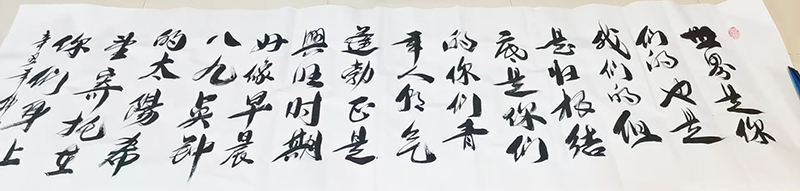 世界是你
们的也是
我们的但
是归根结
底是你们
的你们青
年人朝气
蓬勃正是
興旺时期
好像早晨
八九点钟
的太陽希
望寄托在
你们身上
辛丑年